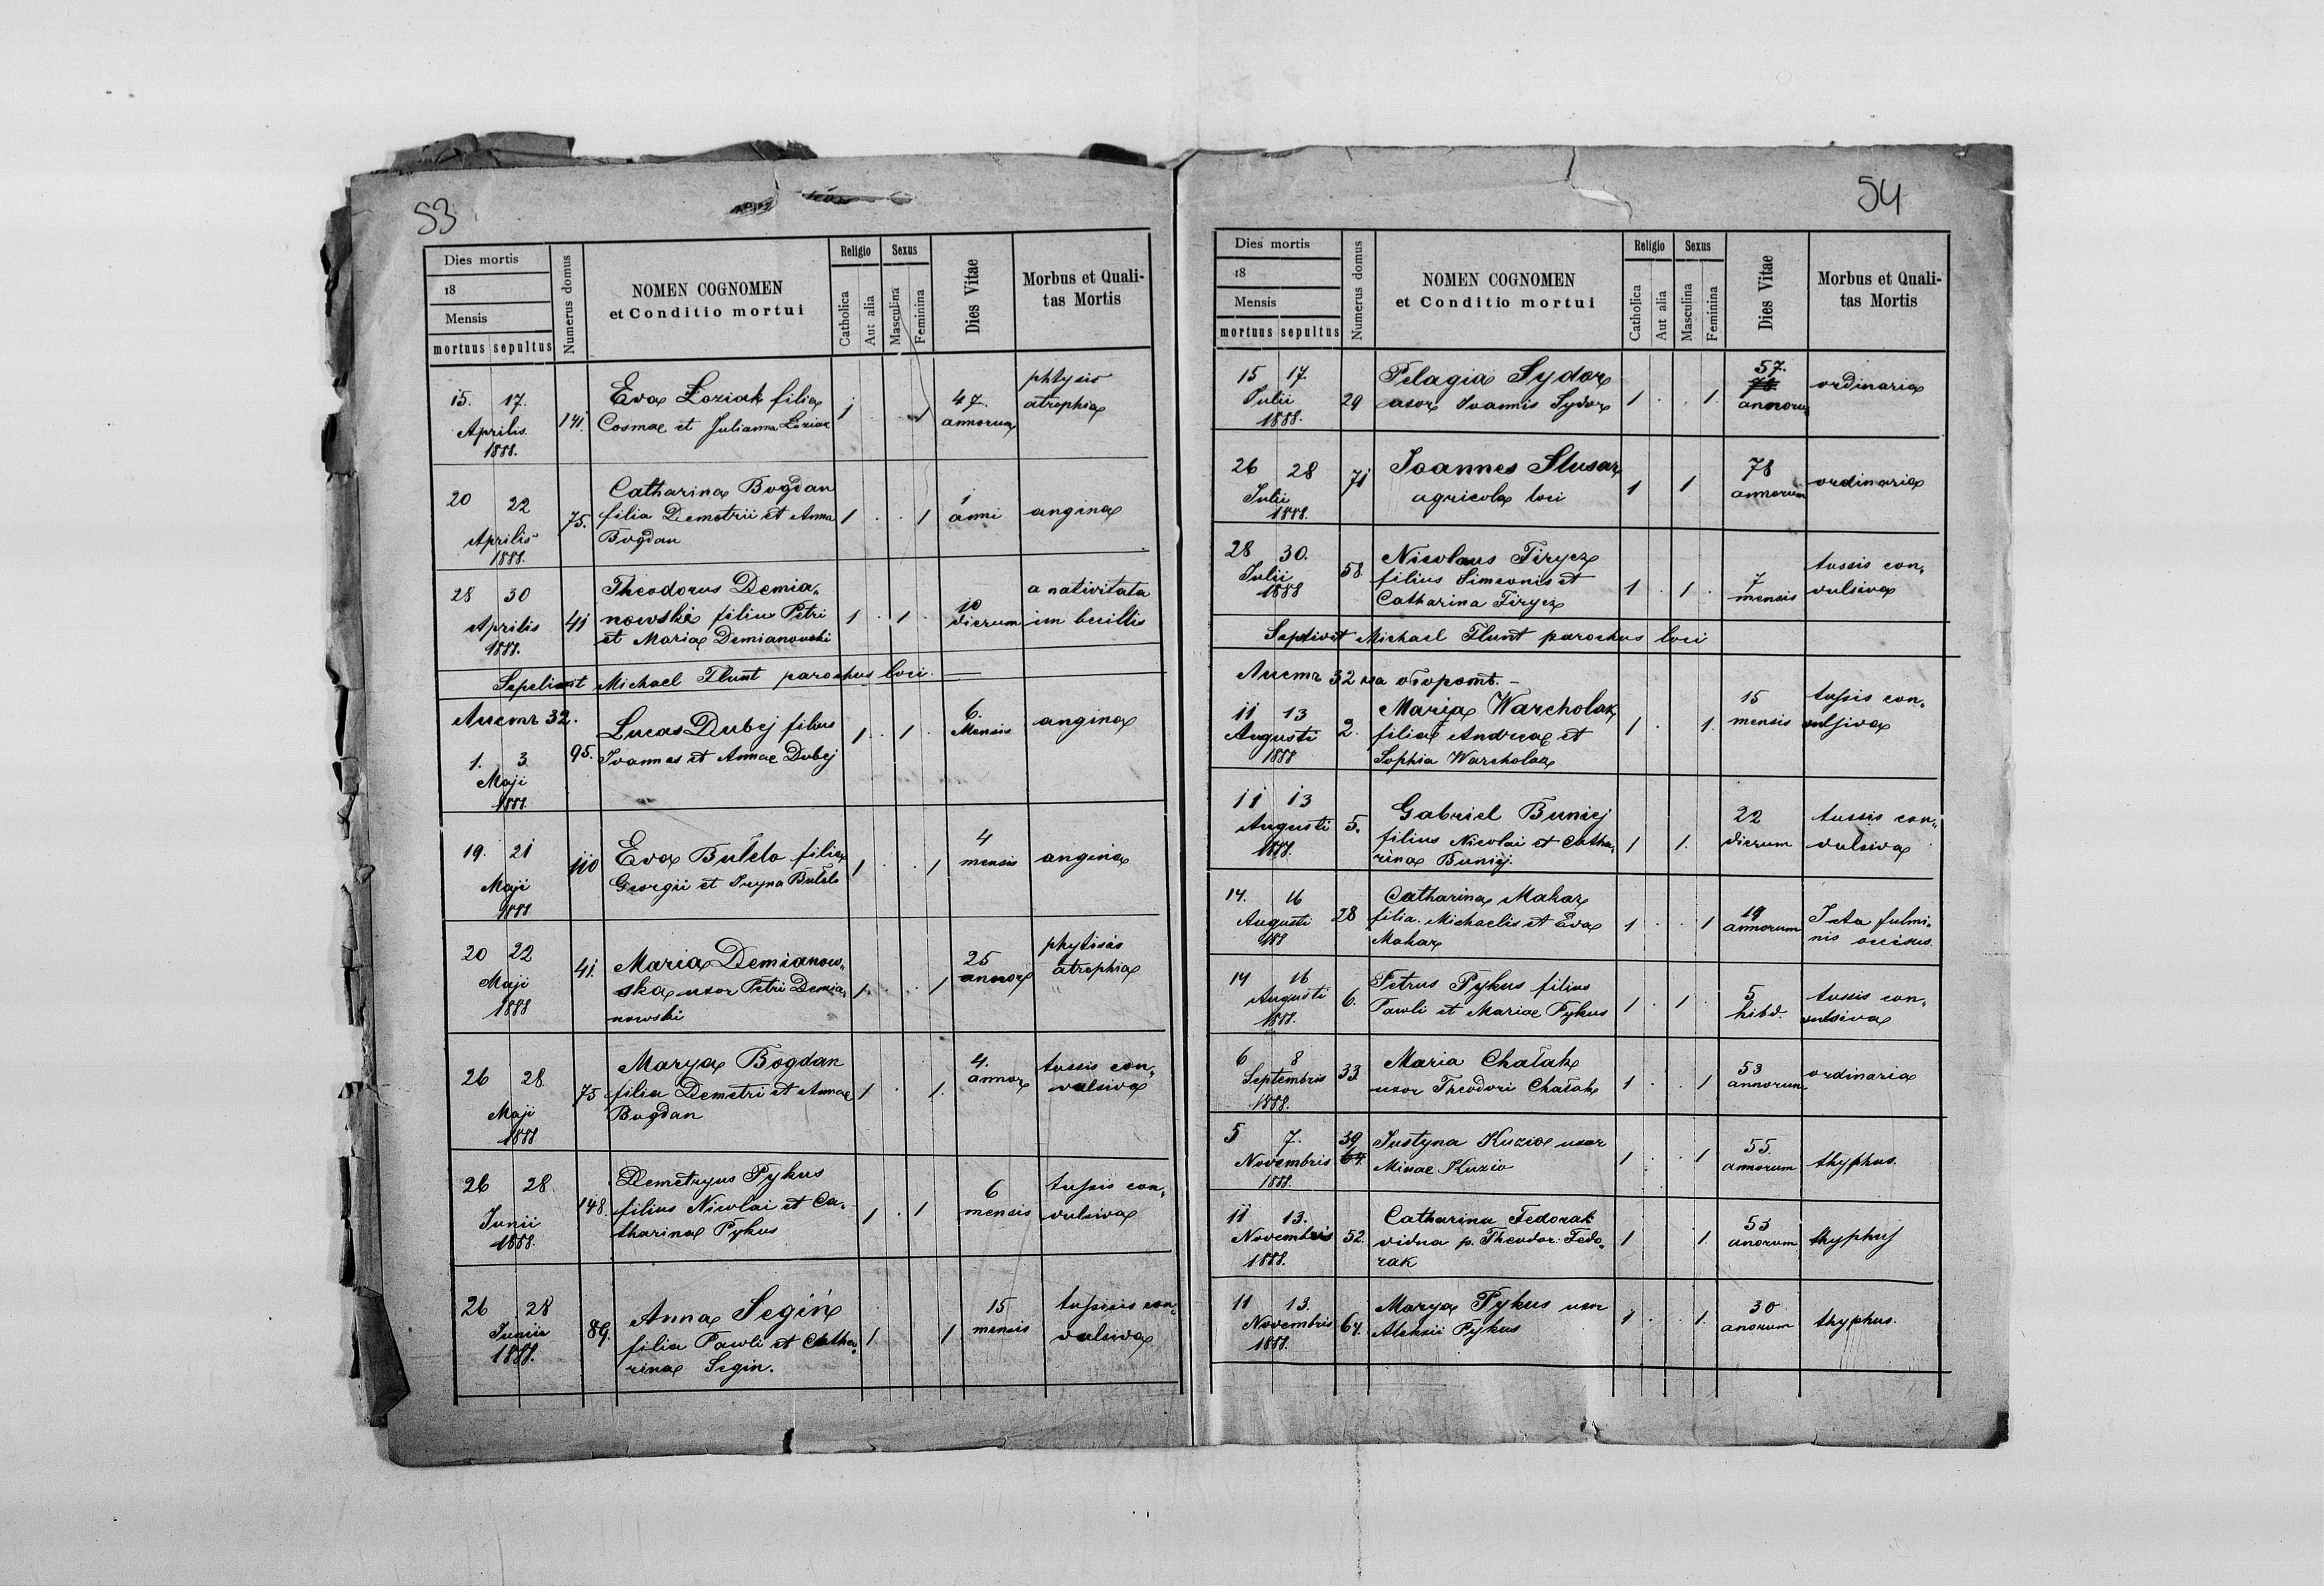 53
Dies mortis
18
Mensis
mortuus sepultus
Numerus domus
NOMEN COGNOMEN
et Conditio mortui
Religio
Catholica
Aut alia
Sexus
Masculina
Feminina
Dies Vitae
Morbus et Quali-
tas Mortis
15. 17.
Aprilis
1888.
141.
Eva Łoziak filia
Cosmae et Julianna Łoziak
1 . . 1
47.
annorum
phtysis
atrophia
20 22
Aprilis
1888.
75.
Catharina Bogdan
filia Demetrii et Anna
Bogdan
1 . . 1
1
anni
angina
28 30
Aprilis
1888.
41
Theodorus Demia„
nowski filius Petri
et Maria Demianowski
1 . 1 .
10
dierum
a nativitata
im becillis
Michael Flunt parochus loci.
Листъ 32.
1. 3
Maji
1888.
95.
Lucas Dubij filius
Joannes et Annae Dubij
1 . 1 .
6.
Mensis
angina
19. 21
Maji
1888
110
Eva Bulelo filia
Georgii et Iryna Bulelo
1 . . 1
4
mensis
angina
20 22
Maji
1888
41.
Maria Demianow„
ska uxor Petri Demia„
nowski
1 . . 1
25
annor
phytisis
atrophia
26 28
Maji
1888
75
Marya Bogdan
filia Demetri et Annae
Bogdan
1 . . 1.
4.
annor
tussis con„
vulsiva
26 28
Junii
1888.
148.
Demetryus Pykus
filius Nicolai et Ca„
tharina Pykus
1 . 1
6
mensis
tussis con„
vulsiva
26 28
Junii
1888.
89.
Anna Segin
filia Pawli et Catha„
rina Segin.
1 1
15
mensis
tussis con„
vulsiva
54
Dies mortis
18
Mensis
mortuus sepultus
Numerus domus
NOMEN COGNOMEN
et Conditio mortui
Religio
Catholica
Aut alia
Sexus
Masculina
Feminina
Dies Vitae
Morbus et Quali-
tas Mortis
15 17.
Julii
1888.
29
Pelagia Sydor
uxor Joannis Sydor
1 . . 1
57.
annorum
ordinaria
26 28
Julii
1888.
71
Joannes Slusar
agricola loci
1 1
78
annorum
ordinaria
28 30.
Julii
1888
58
Nicolaus Firycz
filius Simeonis et
Catharina Firycz
1 . 1 .
7
mensis
tussis con„
vulsiva
Michael Flunt parochus loci
Листъ 32 на оборотъ. –
11 13
Augusti
1888
2.
Marija Warcholak
filia Andrea et
Sophia Warcholak
1 . 1.
15
mensis
tussis con„
vulsiva
11 13
Augusti
1888.
5.
Gabriel Bunij
filius Nicolai et Catha„
rina Bunij.
1 1.
22
dierum
tussis con„
vulsiva
14. 16
Augusti
188
28
Catharina Mahar
filia Michaelis et Eva
Mahar
1 . . 1
19
annorum
Icta fulmi„
nis occisus.
14 16
Augusti
1888.
6.
Petrus Pykus filius
Pawli et Mariae Pykus
1 . 1 .
5
hebd.
tussis con„
vulsiva
6 8
Septembris
1888.
33
Maria Chałak
uxor Theodori Chałak
1 . . 1
53
annorum
ordinaria
5 7.
Novembris
1888.
39
64.
Justyna Kuzio uxor
Minae Kuzio
1 . . 1
55.
annorum
thyphus.
11 13.
Novembris
1888.
52.
Catharina Fedorak
vidua p. Theodor Fedo„
rak
1 1.
53
anorum
thyphus
11 13.
Novembris
1888.
64.
Marya Pykus uxor
Aleksii Pykus
1 . . 1.
30
anorum
thyphus.